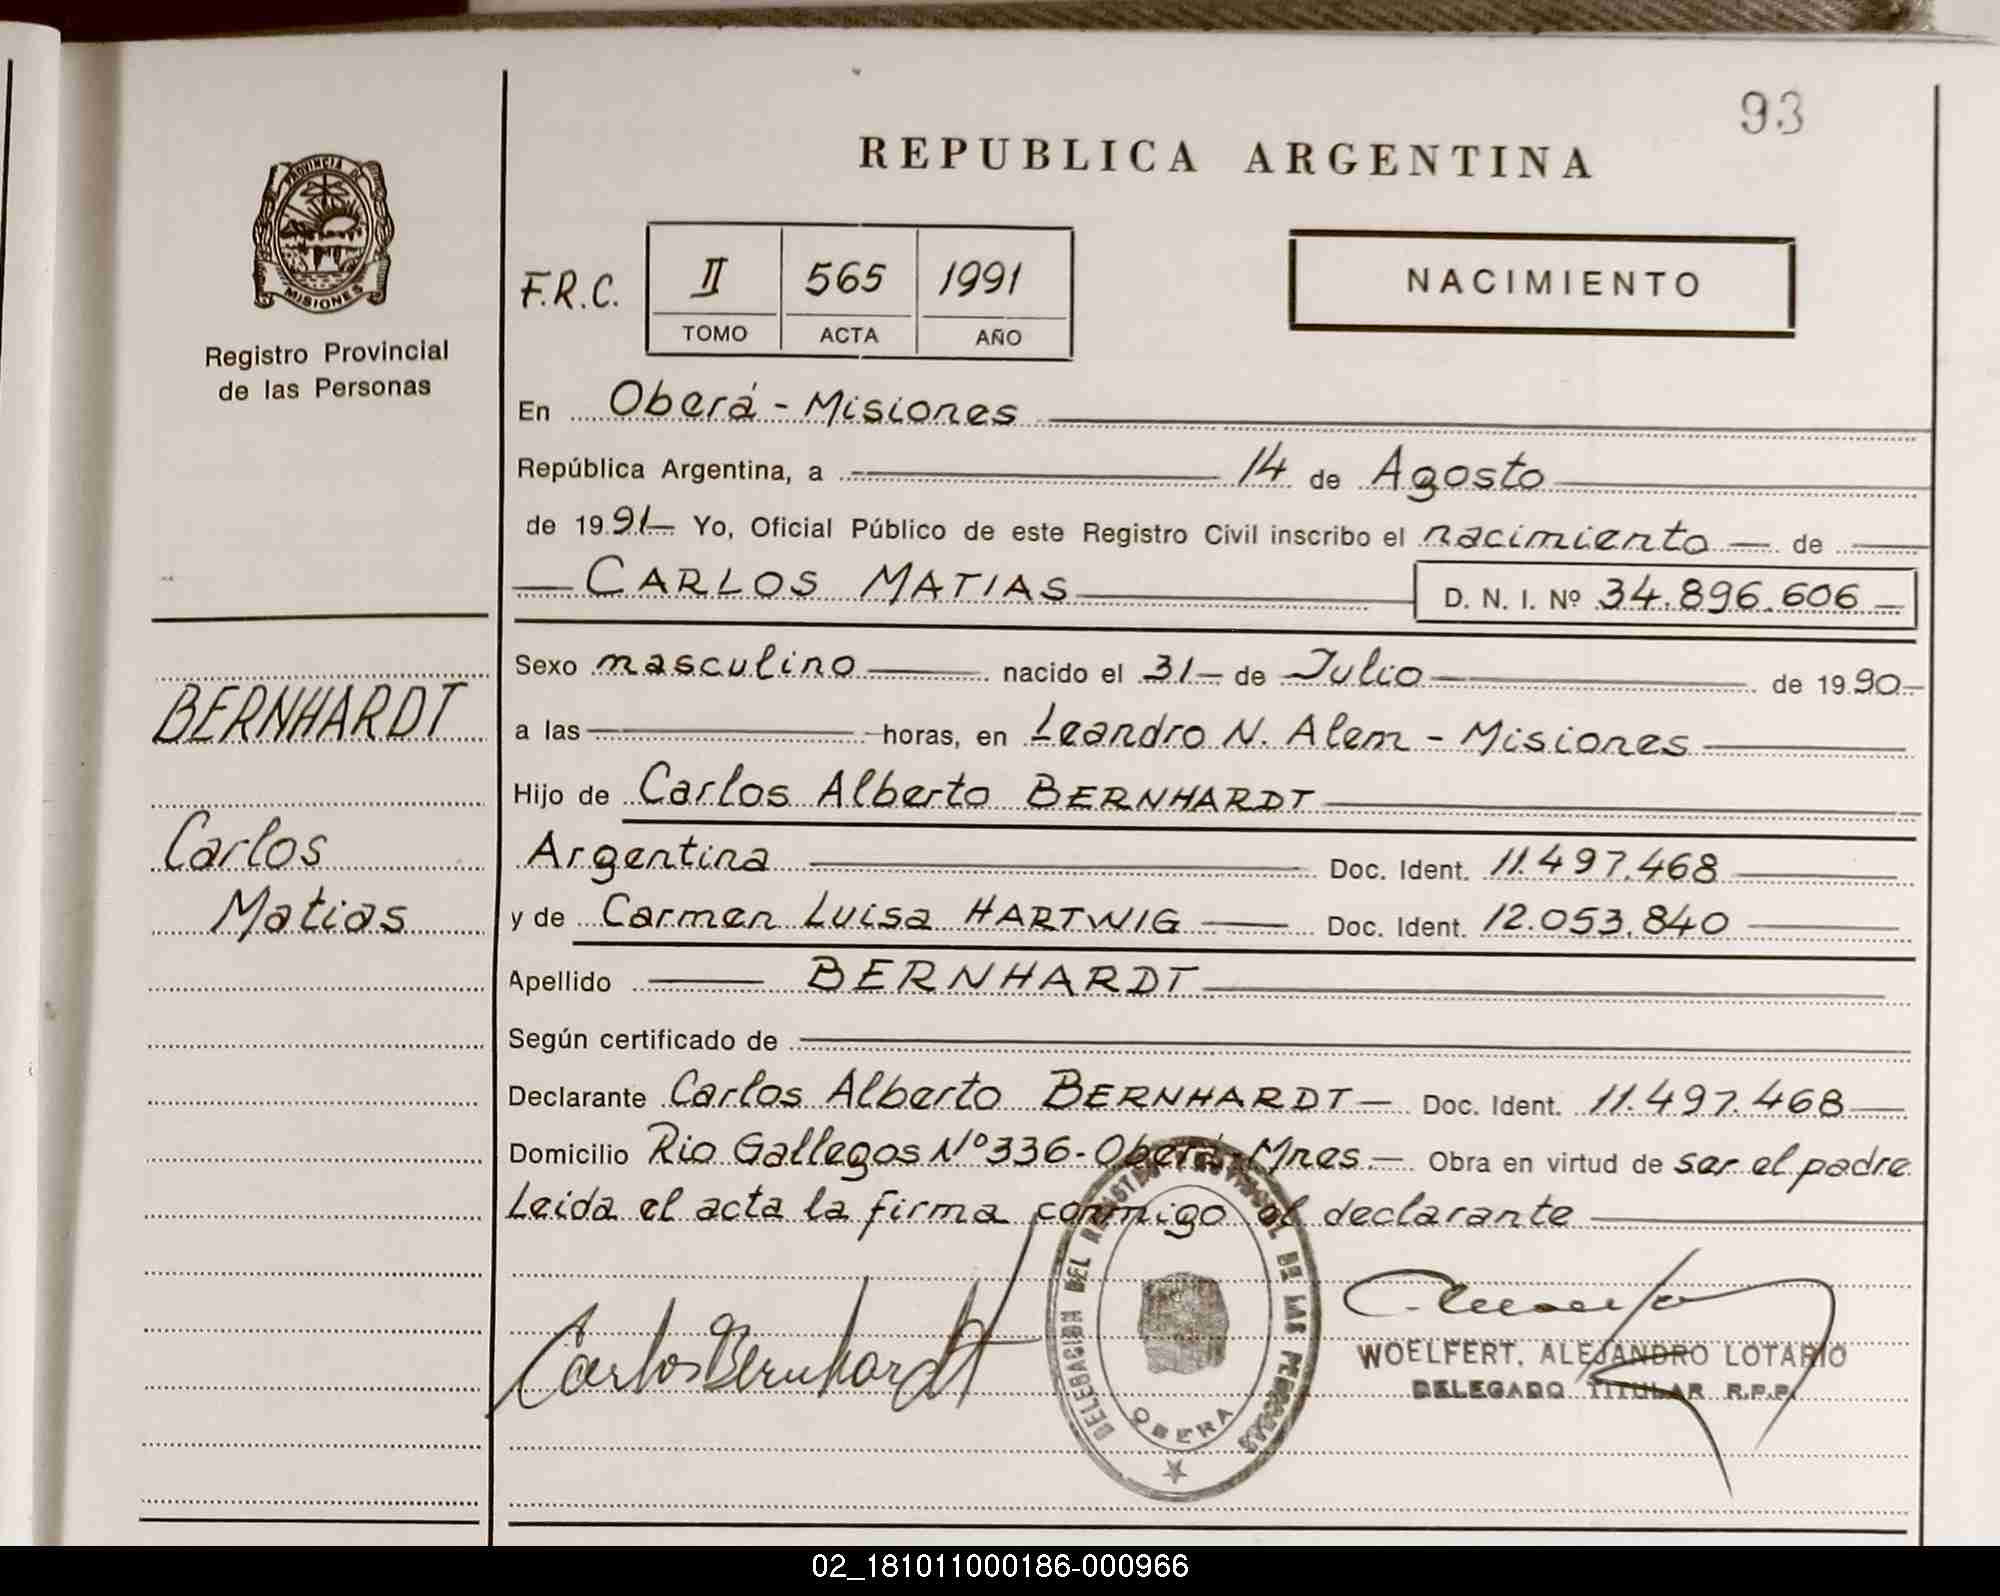 93
REPUBLICA ARGENTINA
PROVINCIA DE
MISIONES
Registro Provincial
de las Personas
F.R.C.
II 565 1991
TOMO ACTA AÑO
NACIMIENTO
En Oberá - Misiones
República Argentina, a 14 de Agosto
de 1991 Yo, Oficial Público de este Registro Civil inscribo el nacimiento de
CARLOS MATIAS D. N. I. Nº 34.896.606
BERNHARDT
Carlos
Matias
Sexo masculino nacido el 31 de Julio de 1990
a las horas, en Leandro N. Alem - Misiones
Hijo de Carlos Alberto BERNHARDT
Argentina Doc. Ident. 11.497.468
y de Carmen Luisa HARTWIG Doc. Ident. 12.053.840
Apellido BERNHARDT
Según certificado de
Declarante Carlos Alberto BERNHARDT Doc. Ident. 11.497.468
Domicilio Rio Gallegos Nº 336 - Oberá - Mnes. Obra en virtud de ser el padre
Leida el acta la firma conmigo el declarante
Carlos Bernhardt
DELEGACION DEL REGISTRO PROVINCIAL DE LAS PERSONAS
OBERA
WOELFERT, ALEJANDRO LOTARIO
DELEGADO TITULAR R.P.P.
02_181011000186-000966